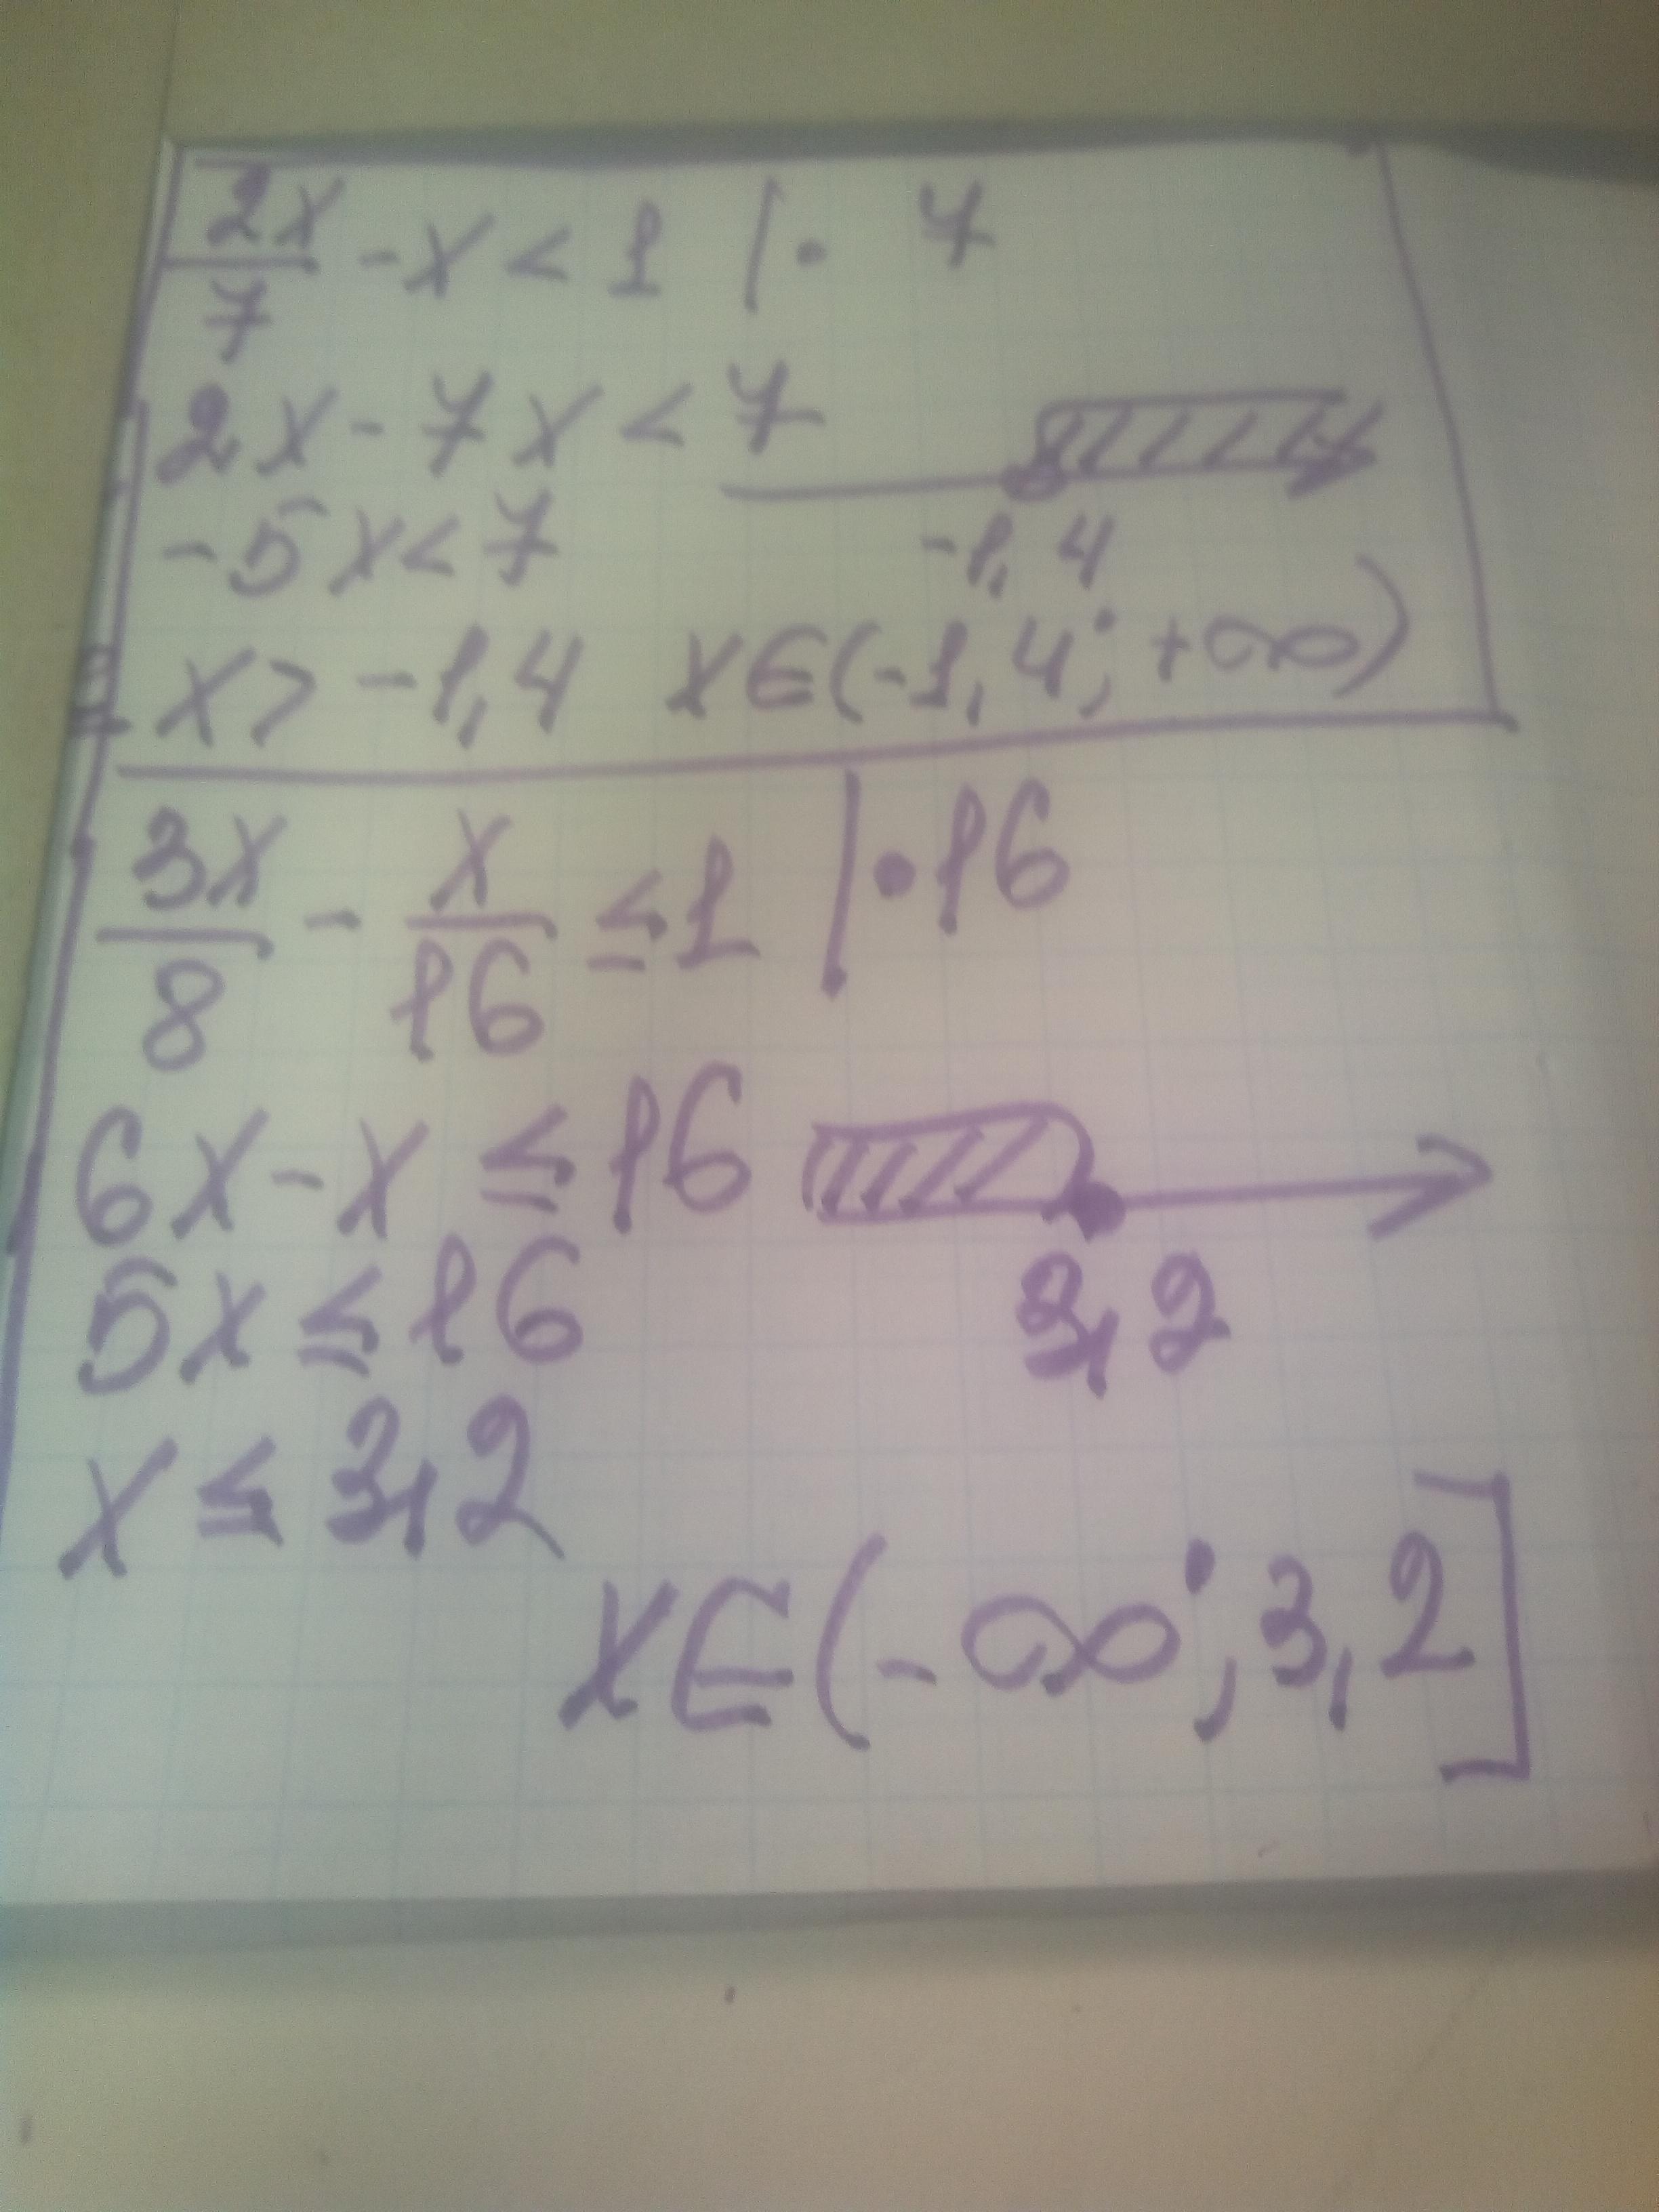 2x/7 - x < 1 | · 7
2x - 7x < 7
-5x < 7
-1,4
x > -1,4 x∈(-1,4; +∞)
3x/8 - x/16 ≤ 1 | · 16
6x - x ≤ 16
5x ≤ 16
3,2
x ≤ 3,2
x∈(-∞; 3,2]